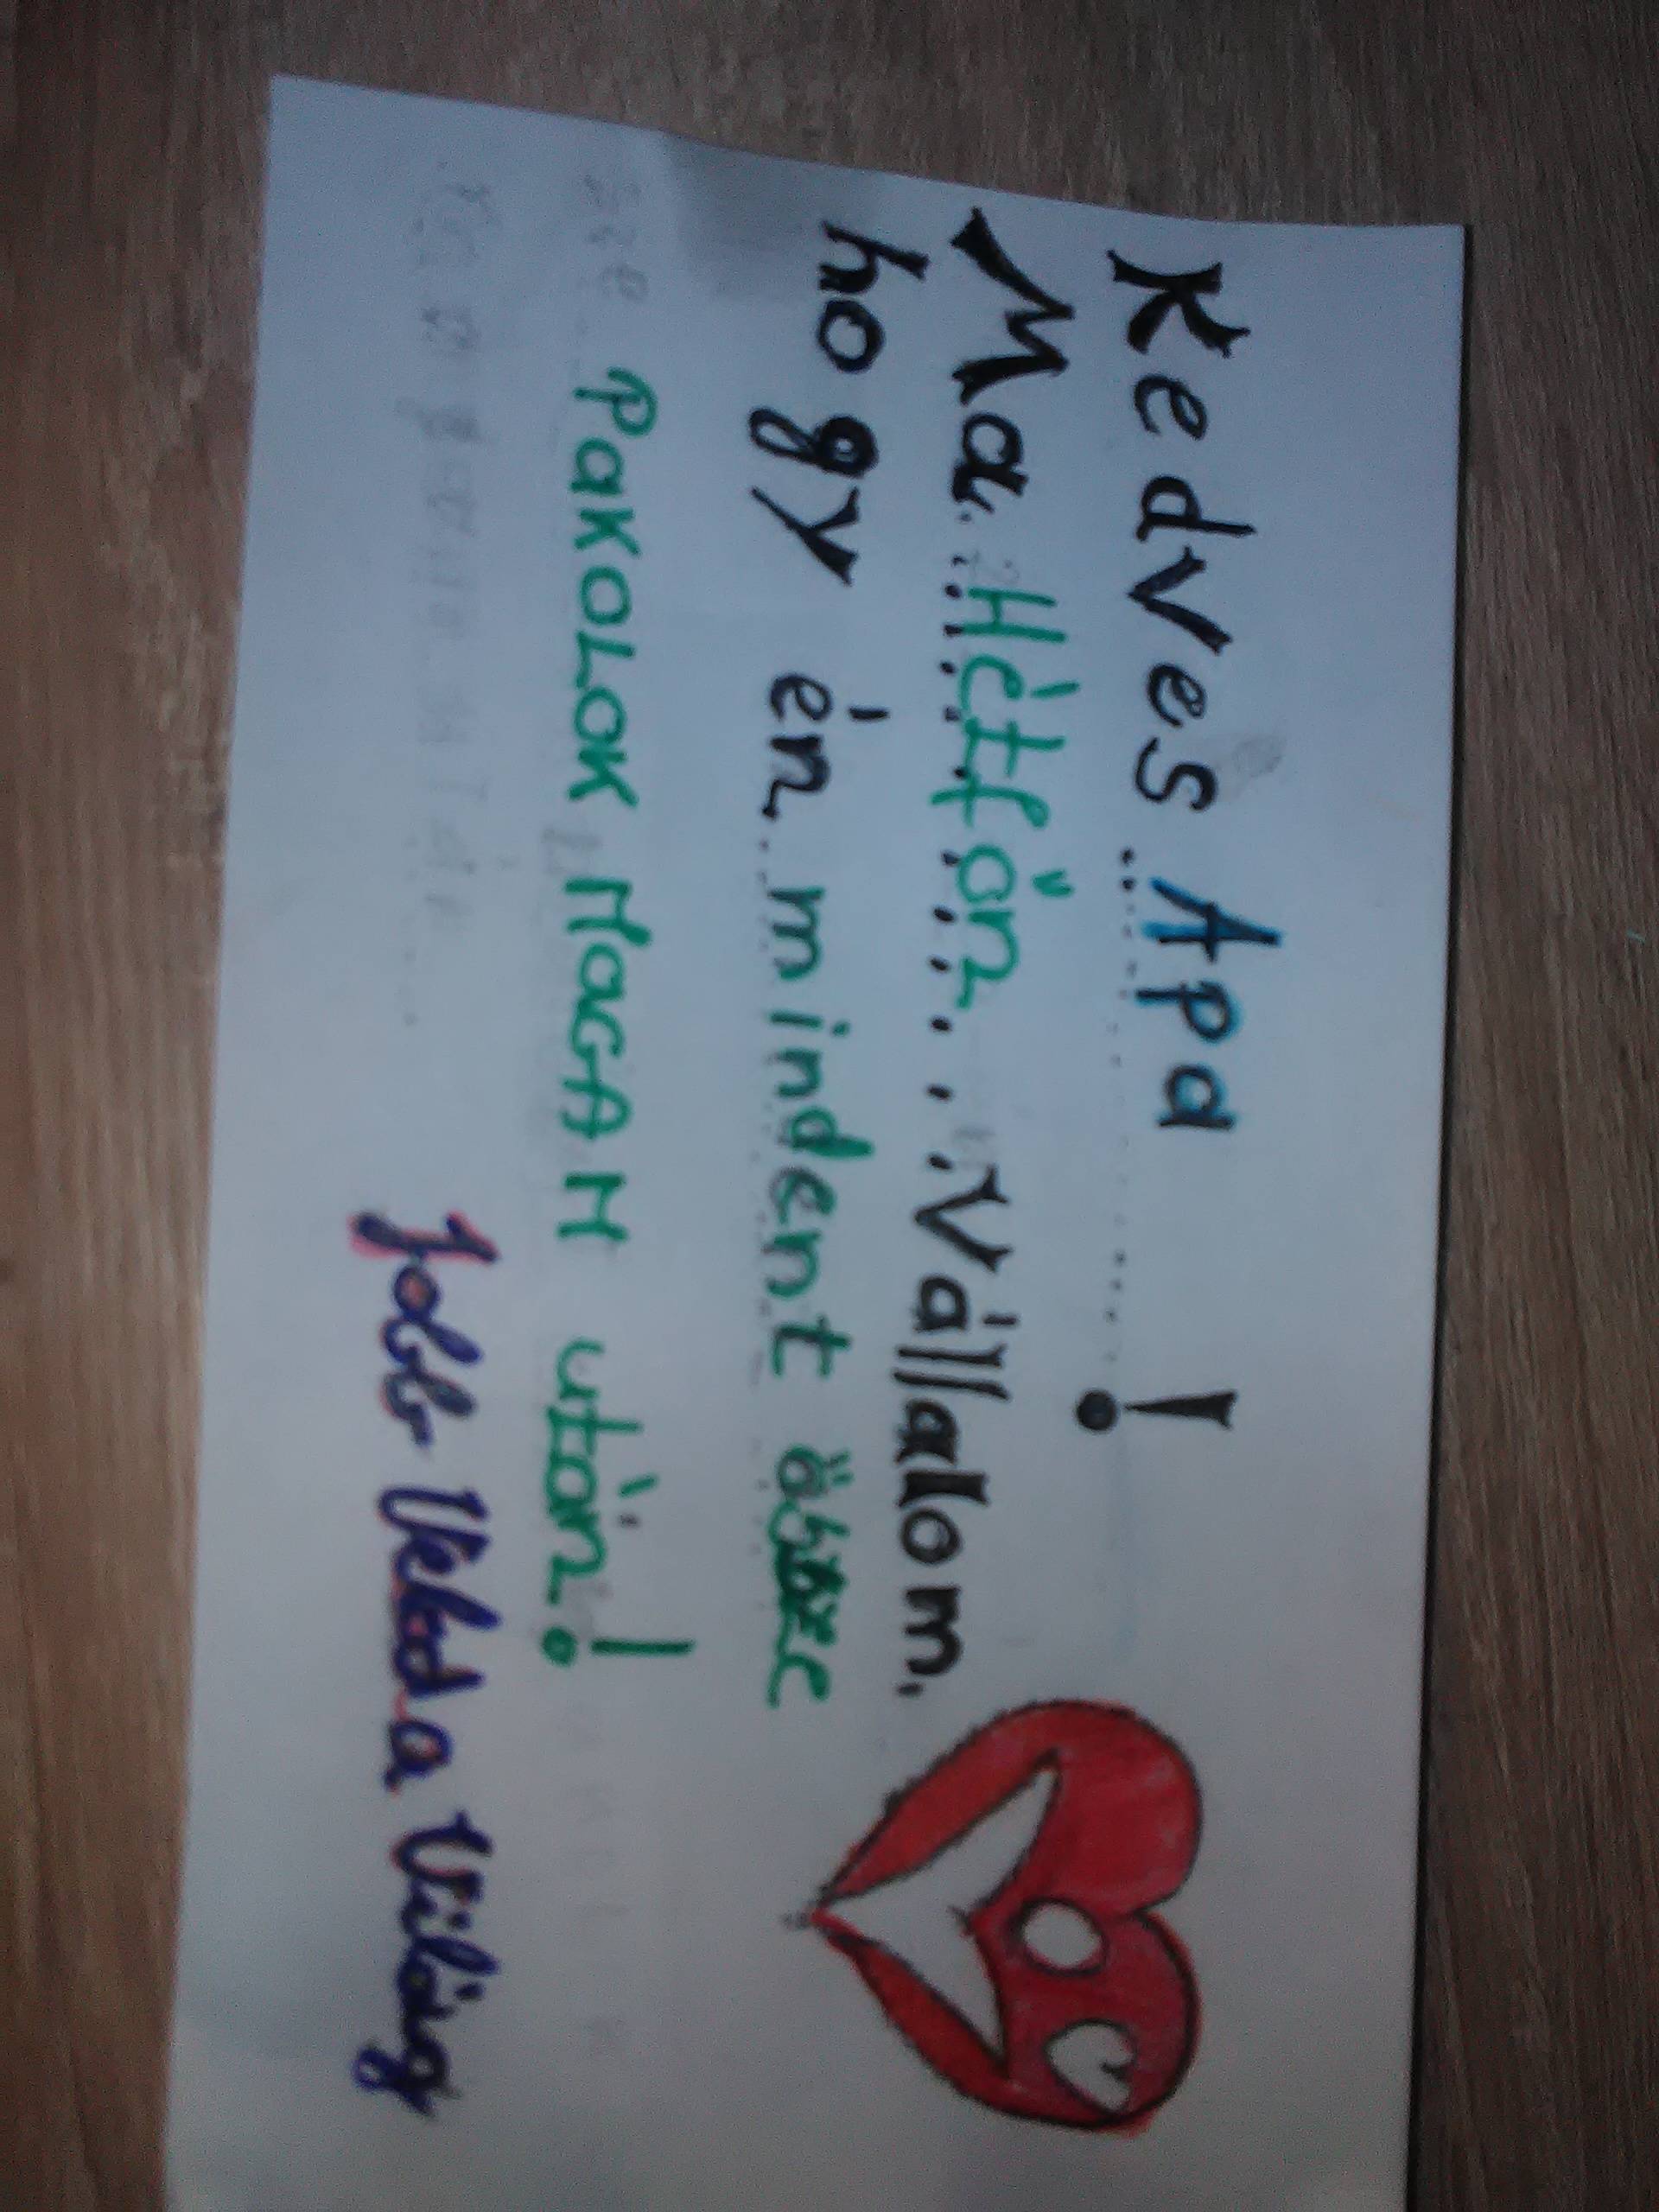 Kedves Apa !
Ma Hétfőn Vállalom,
hogy én mindent össze
PAKOLOK MAGAM után!
Jobb Veled a Világ